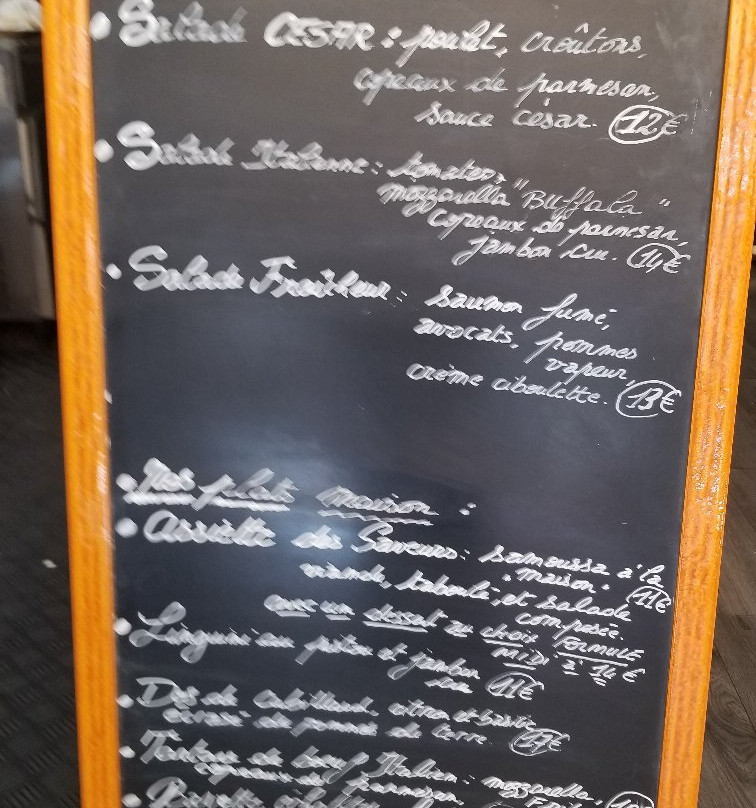 • Salade CESAR : poulet, croûtons,
copeaux de parmesan,
sauce césar. 12€
• Salade Italienne : tomates,
mozzarella "Buffala"
copeaux de parmesan,
jambon cru. 14€
• Salade Fraîcheur : saumon fumé,
avocats, pommes
vapeur,
crème ciboulette. 13€
• Nos plats maison :
• Assiette des Saveurs : samoussa à la
viande, taboulé "maison" 11€
et salade
composée.
avec un dessert au choix FORMULE
MIDI à 14€
• Linguini au pistou et jambon
cru 11€
• Dos de cabillaud, citron et basilic
écrasé de pomme de terre. 17€
• Tartare de bœuf Italien : mozzarella,
copeaux de parmesan,